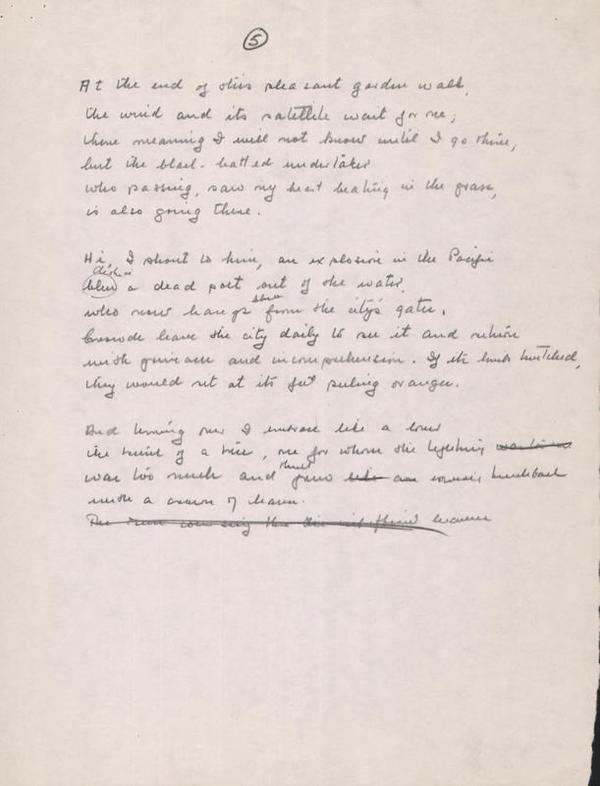 5
At the end of this pleasant garden walk,
the wind and its satellite wait for me;
their meaning I will not know until I go there,
but the black-hatted undertaker
who passing, saw my heart beating in the grass,
is also going there.
Hi, I shout to him, an explosion in the Pacific
blew a dead poet out of the water,
who now hangs from the city's gates.
Crowds leave the city daily to see it and return
with grimace and incomprehension. If its limbs twitched,
they would sit at its feet peeling oranges.
And turning over I embrace like a lover
the trunk of a tree, one for whom the lightning
was too much and grew hunchback
with a crown of leaves.